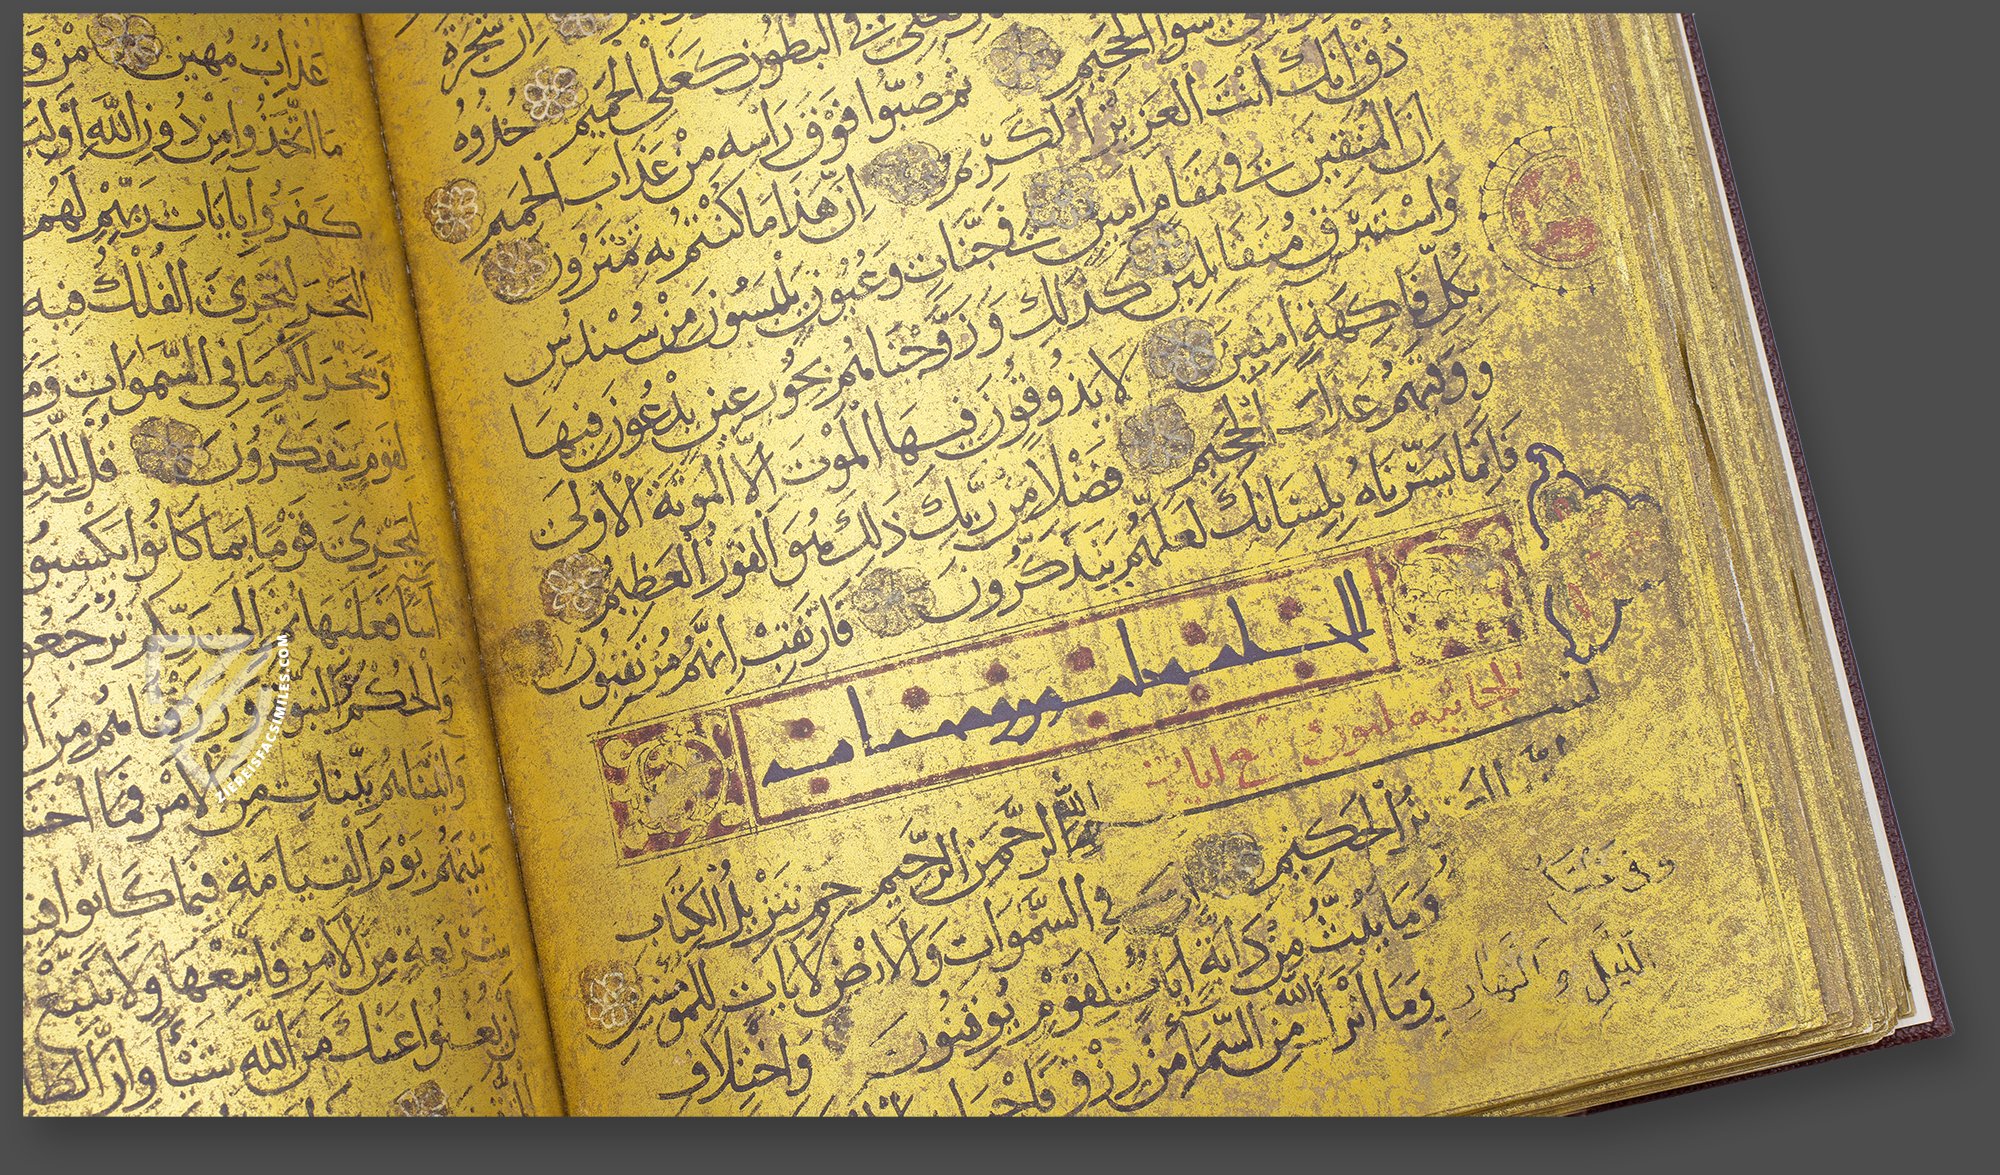 ان شجرة
في البطون كغلي الحميم خذوه
سوا الجحيم ثم صبوا فوق راسه من عذاب الحميم
ذق انك انت العزيز الكريم ان هذا ما كنتم به تمترون
ان المتقين في مقام امين في جنات وعيون يلبسون من سندس
واستبرق متقابلين كذلك وزوجناهم بحور عين يدعون فيها
بكل فاكهة امنين لا يذوقون فيها الموت الا الموتة الاولى
ووقيهم عذاب الجحيم فضلا من ربك ذلك هو الفوز العظيم
فانما يسرناه بلسانك لعلهم يتذكرون فارتقب انهم مرتقبون
الجاثيه ايات
بسم الله الرحمن الرحيم حم تنزيل الكتاب
الحكيم ان في السموات والارض لايات للمومنين
وفي وما يبث من دابة ايات لقوم يوقنون واختلاف
الليل والنهار وما انزل الله من السماء من رزق فاحيا
عذاب مهين من و
ما اتخذوا من دون الله اوليا
كفروا بايات ربهم لهم
البحر لتجري الفلك فيه
وسخر لكم ما في السموات وم
لقوم يتفكرون قل للذ
ليجزي قوما بما كانوا يكسبو
اسا فعليها ثم الى ربكم ترجعو
والحكم والنبوة ورزقناهم من ال
واتيناهم بينات من الامر فما اختل
بينهم يوم القيامة فيما كانوا فيه
شريعة من الامر فاتبعها ولا تتبع
لن يغنوا عنك من الله شيئا وان الظا
ZIEREISFACSIMILES.COM